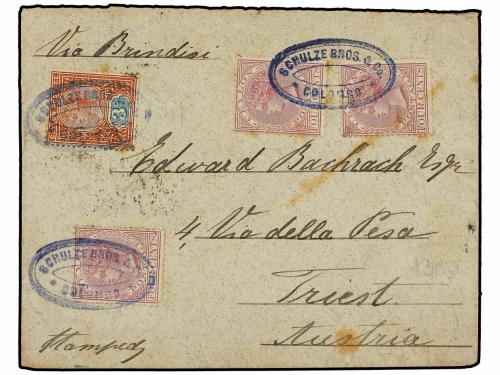 Via Brindisi
SCHULZE BROS. & Co.
COLOMBO
FOUR CENTS
FOUR CENTS
Edward Bachrach Esqr
4, Via della Pesa
SCHULZE BROS. &
COLOMBO
Triest
Austria
Stamped